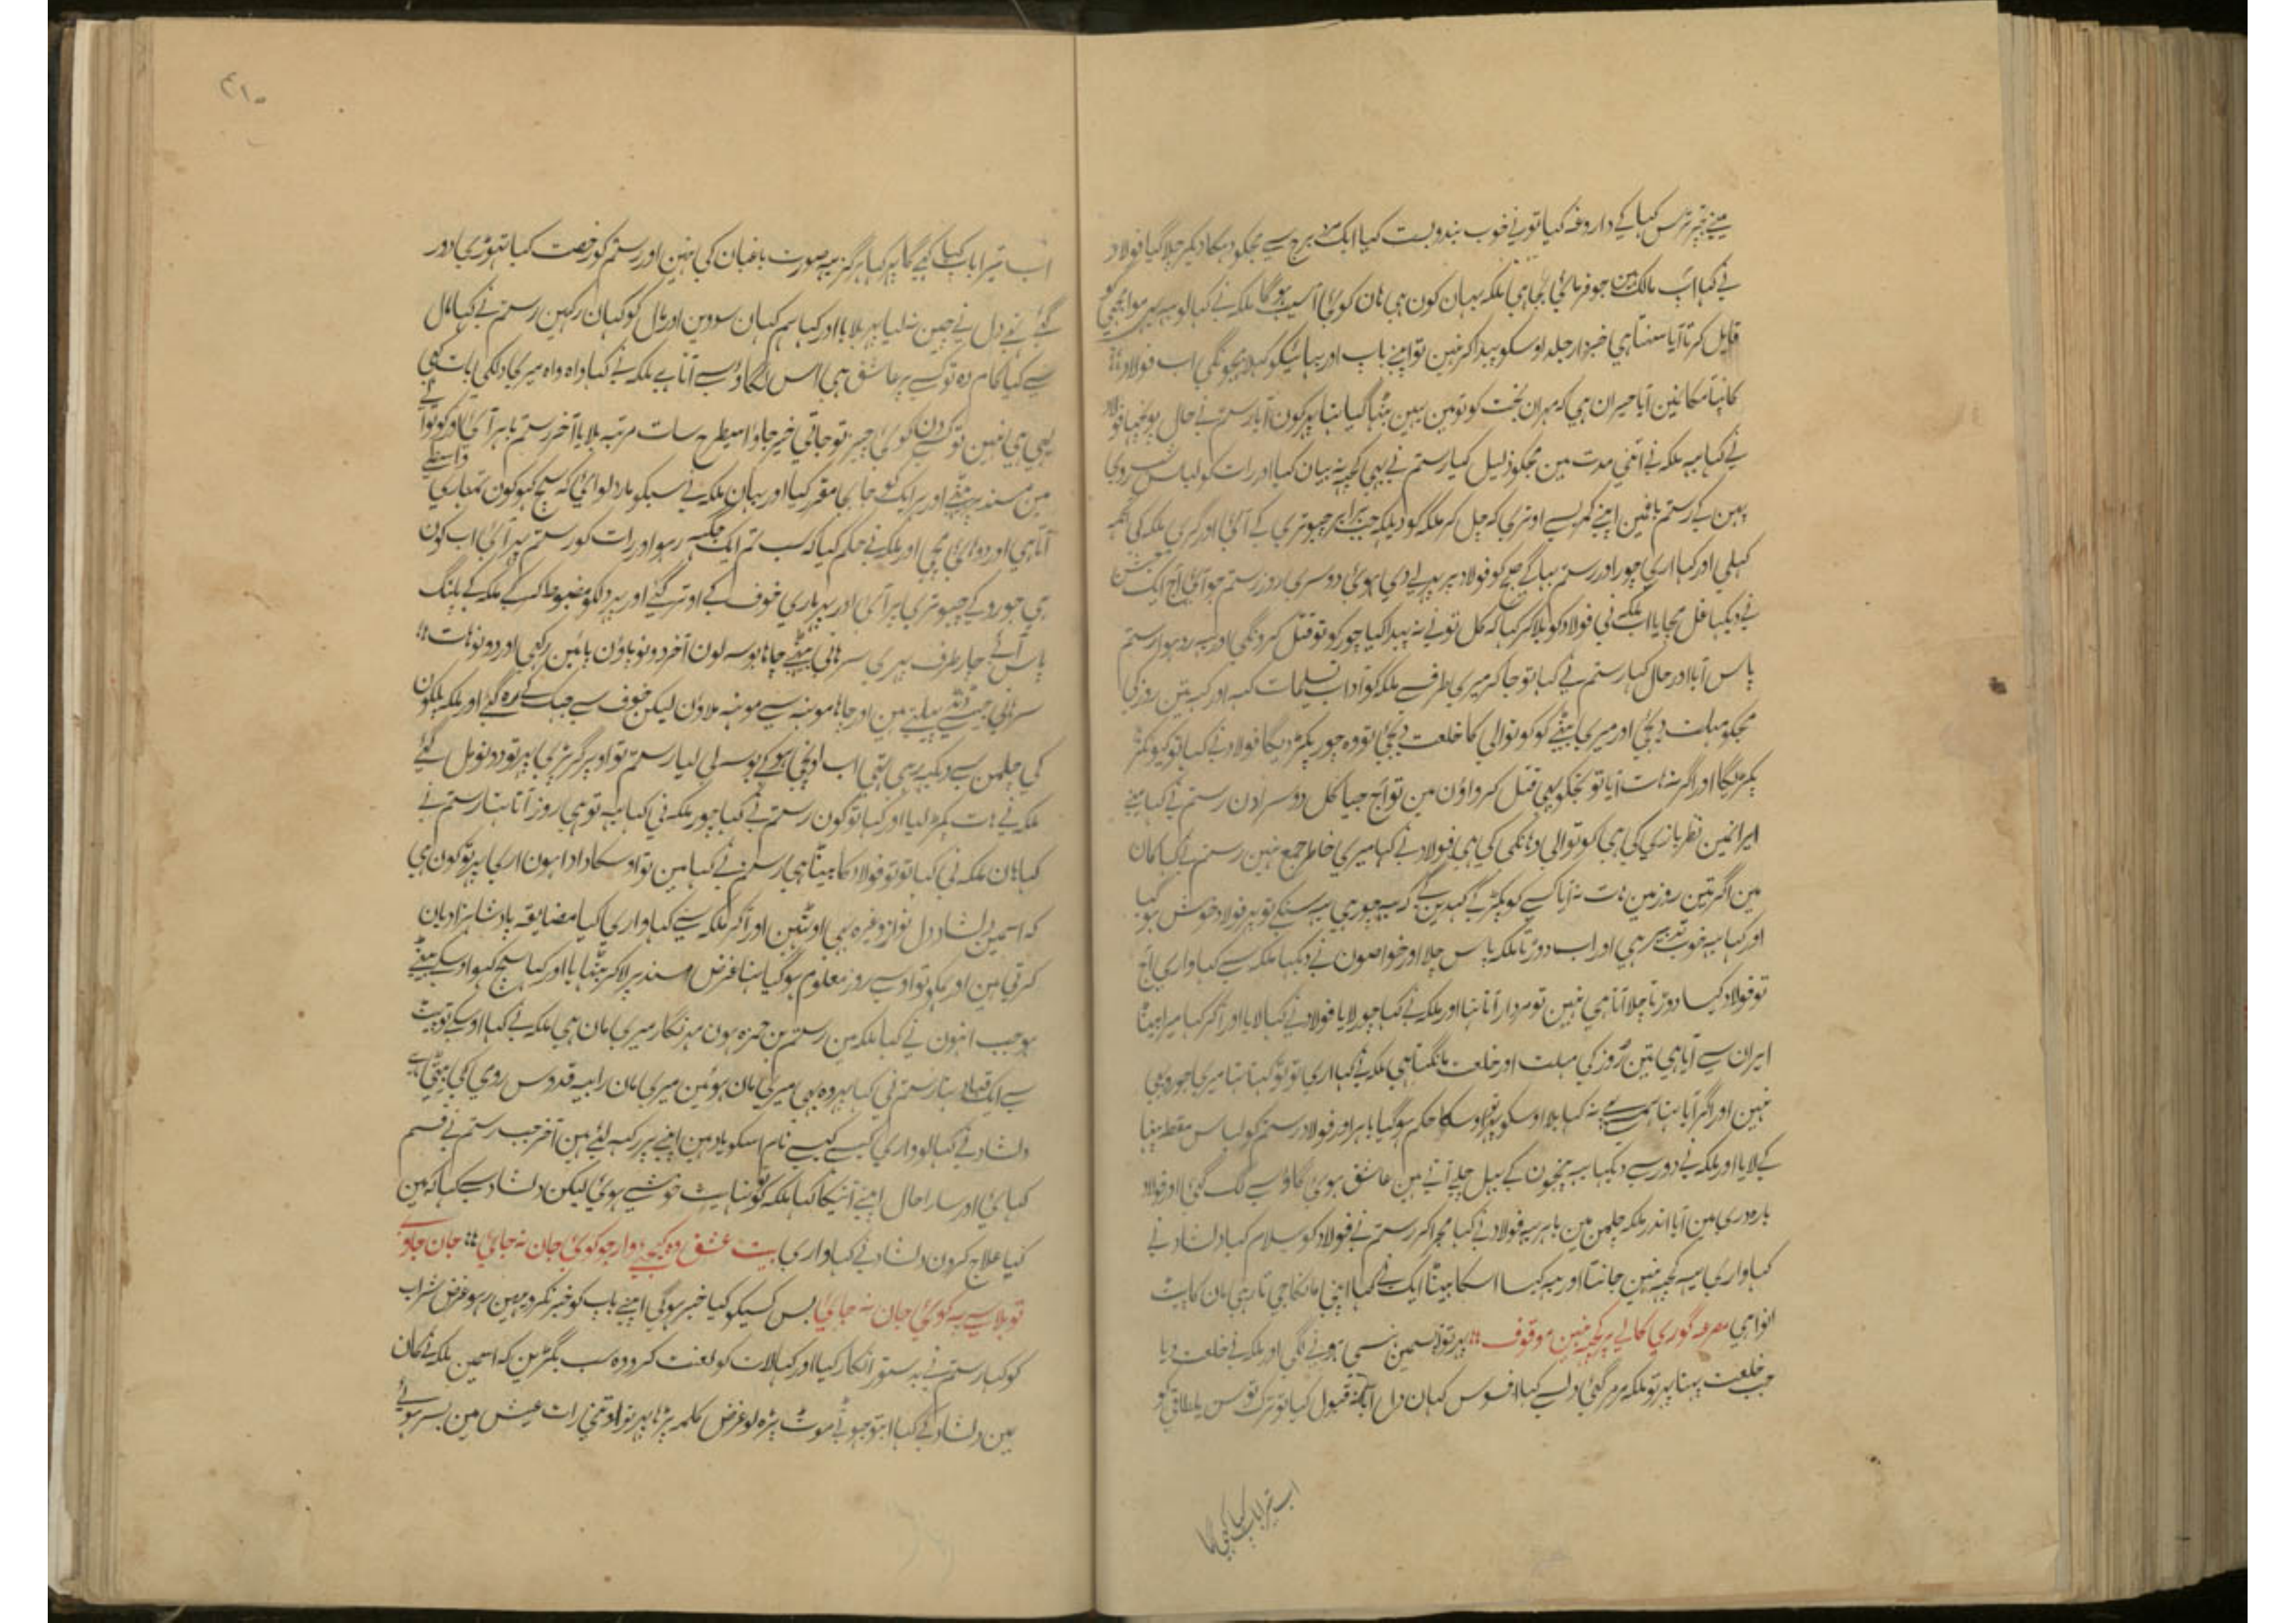 مینے تجہ پر ترس کہا کے داروغہ کیا تو نے خوب بندوبست کیا ایک مرد برج سے مجکو دہمکا دیکر چلا گیا فولاد
نے کہا آپ مالک ہین جو فرمائی بجا ہی ملکہ یہان کون ہی ہان کوئی آسیب ہوگا ملکہ نے کہا لو یہہ موا مجہی کو
قایل کرتا آیا سنتا ہی خبردار جلد اوسکو پیدا کر نہین تو اپنے باپ اور بہائیکو کہلا بہیجونگی اب فولاد
کانپتا مکانمین آیا حیران ہی کہ مہران بخت کو تو مین یہین بٹہا گیا تہا پہر کون آیا رستم نے حال پوچہا فولاد
نے کہا یہہ ملکہ نے اتنی مدت مین مجکو ذلیل کیا رستم نے بہی کچہہ نہ بیان کیا اور رات کو لباس شبروی
پہن کے رستم باغ مین اپنے کمرے سے اوتری کہ چل کر ملکہ کو دیکہہ جب برابر چبوتری کے آئی اور گری ملکہ کی آنکہہ
کہلی اور کہا اری چور اور رستم بہاگے صبح کو فولاد پر پہر لے دی ہوئی دوسری روز رستم جو آئی آج ایک
نے دیکہا غل مچایا اب ملکہ نی فولاد کو بلا کر کہا کہ کل تو نے نہ پیدا کیا چور کو تو قتل کرونگی اور یہہ رو ہوا رستم
پاس آیا اور حال کہا رستم نے کہا تو جا کر میری طرف سے ملکہ کو آداب تسلیمات کہہ اور کہہ تین روز کی
مجکو مہلت دیجئی اور میری بیٹے کو کوتوالی کا خلعت دیجئی تو وہ چور پکڑ دیگا فولاد نے کہا تو کیونکر
پکڑیگا اور اگر نہ ہات آیا تو تجکو بہی قتل کرواؤن مین تو آج جیا کل دوسرا دن رستم نے کہا مینے
ایرانمین نظربازی کی ہی کوتوالی وہانکی کی ہی فولاد نے کہا میری خاطر جمع نہین رستم نے کہا ہان
مین اگر تین روز مین ہات نہ آیا کسے کو پکڑ کے کہدین گے کہ یہہ چور ہی یہہ سنکے تو پہر فولاد خوش ہو گیا
اور کہا یہہ خوب تدبیر ہی اور اب دوڑتا ملکہ پاس چلا اور خواصون نے دیکہا ملکہ سے کہا واری آج
تو فولاد کیسا دوڑتا چلا آتا ہی نہین تو مردار آتا تہا اور ملکہ نے کہا چور لایا فولاد نے کہا لایا اور آکر کہا میرا بیٹا
ایران سے آیا ہی تین روز کی مہلت اور خلعت مانگتا ہی ملکہ نے کہا اری تو تو کہتا تہا میری جورو بہی
نہین اور اگر آیا تہا ہم سے نہ کہا بلا اوسکو پہر اوسکا حکم ہو گیا باہر اور فولاد رستم کو لباس مقطع پہنا
کے لایا اور ملکہ نے دور سے دیکہا یہہ بیخون کے بہل چلے آتے ہین عاشق ہوئی گاؤ سے لگ گئی اور فولاد
بارہ دری مین آیا اندر ملکہ چلمن مین باہر سے فولاد نے کہا مجرا کر رستم نے فولاد کو سلام کیا دلشاد نے
کہا واری یہہ کچہہ نہین جانتا اور یہہ کیسا اسکا بیٹا ایک نے کہا اپنی مانکا جی تا رہی ہان کا پٹ
انوا ہی مصرعہ گوری کالے پر کچہہ نہین موقوف ؞ پہر تو آسمین ہنسی ہونے لگی اور ملکہ نے خلعت دیا
جب خلعت پہنا پہر تو ملکہ مر مر گئی دل سے کہا افسوس کہان دل آیا قبول کیا تو ترک توسن یلطاقی کو
اب تیرا باپ کیا کہی گا
۴۱۰
اب تیرا باپ کیا کہے گا پہر کہا ہرگز یہہ صورت باغبان کی نہین اور رستم کو رخصت کیا تہوڑی دور
گئے تہے دل نے چین نہ لیا پہر بلایا اور کہا ہم کہان سووین اور مال کو کہان رکہین رستم نے کہا مال
سے کیا کام وہ تو کسے پر عاشق ہی اس لگاوٹ سے آتا ہے ملکہ نے کہا واہ واہ میری دلکی بات کہی
یہی ہی نہین تو کسے دن کوئی چیز تو جاتی خیر جاؤ اسیطرح سات مرتبہ بلایا آخر رستم باہر آئی اور کوتوالی
مین مسند پر بیٹہے اور ہر ایک کو جا بجا مقرر کیا اور یہان ملکہ نے سبکو مارڈلوائی کہ سچ کہو کون تمہاری واسطے
آتا ہی اور دوہائی مچی اور ملکہ نے حکم کیا کہ سب تم ایک جگہہ رہو اور رات کو رستم پہر آئی اب کون
ہی جو روکے چبوتری پر آئی اور پہر ماری خوف کے اوتر گئے اور پہر دلکو مضبوط کر کے ملکہ کے پلنگ
پاس آئے چار طرف پہری سرہانی بیٹہے چاہا بوسہ لون آخر دونو پاؤن پائین رکہی اور دونو ہات
سرہانی جیسے ڈنڈ پیلتے ہین اور چاہا مونہہ سے مونہہ ملاؤن لیکن خوف سے جہک کے رہ گئے اور ملکہ پلکون
کی چلمن سے دیکہہ رہی تہی اب اونچی ہو کے بوسہ لی لیا رستم تو اوپر گر پڑی پہر تو دونو مل گئے
ملکہ نے ہات پکڑ لیا اور کہا تو کون رستم نے کہا چور ملکہ نی کہا یہہ تو ہی روز آتا تہا رستم نے
کہا ہان ملکہ نی کہا تو تو فولاد کا بیٹا ہی رستم نے کہا مین تو اوسکا دادا ہون اری پہر تو کون ہی
کہ اسمین دلشاد دل نواز وغیرہ بہی اوٹہین اور آکر ملکہ سے کہا واری کیا مضایقہ پادشاہزادیان
کرتی ہین اور ہمکو تو اوسے روز معلوم ہو گیا تہا غرض مسند پر لا کر بٹہایا اور کہا سچ کہو اوسکے بیٹے
بموجب انہون نے کہا ملکہ مین رستم بن حمزہ ہون مہر نگار میری مان ہی ملکہ نے کہا اوسکے تو پیٹ
سے ایک قباد تہا رستم نی کہا پہر وہ بہی میری مان ہوئین میری مان رابیہ قدوس رومی کی بیٹی ہے
دلشاد نے کہا لو واری کیسے کیسے نام اسکو یاد ہین اپنے پر رکہہ لئے ہین آخر جب رستم نے قسم
کہائی اور سارا حال اپنے آنیکا کہا ملکہ کو تو نہایت خوشے ہوئی لیکن دلشاد سے کہا کہ مین
کیا علاج کرون دلشاد نے کہا واری بیت عشق وہ کیجئے وار جو کوئی جان نہ جائی ؞ جان جاوے
تو بلا سے پہ کوئی جان نہ جائی بس کسیکو کیا خبر ہوگی اپنے باپ کو خبر نکرو یہین رہو غرض شراب
کو کہا رستم نے بدستور انکار کیا اور کہا لات کو لعنت کرو وہ سب بگڑین کہ اسمین ملکہ نے کان
مین دلشاد کے کہا ابتو جہوٹ موٹ پڑہ لو غرض کلمہ پڑہا پہر تو اوتنی رات عیش مین بسر ہوئے